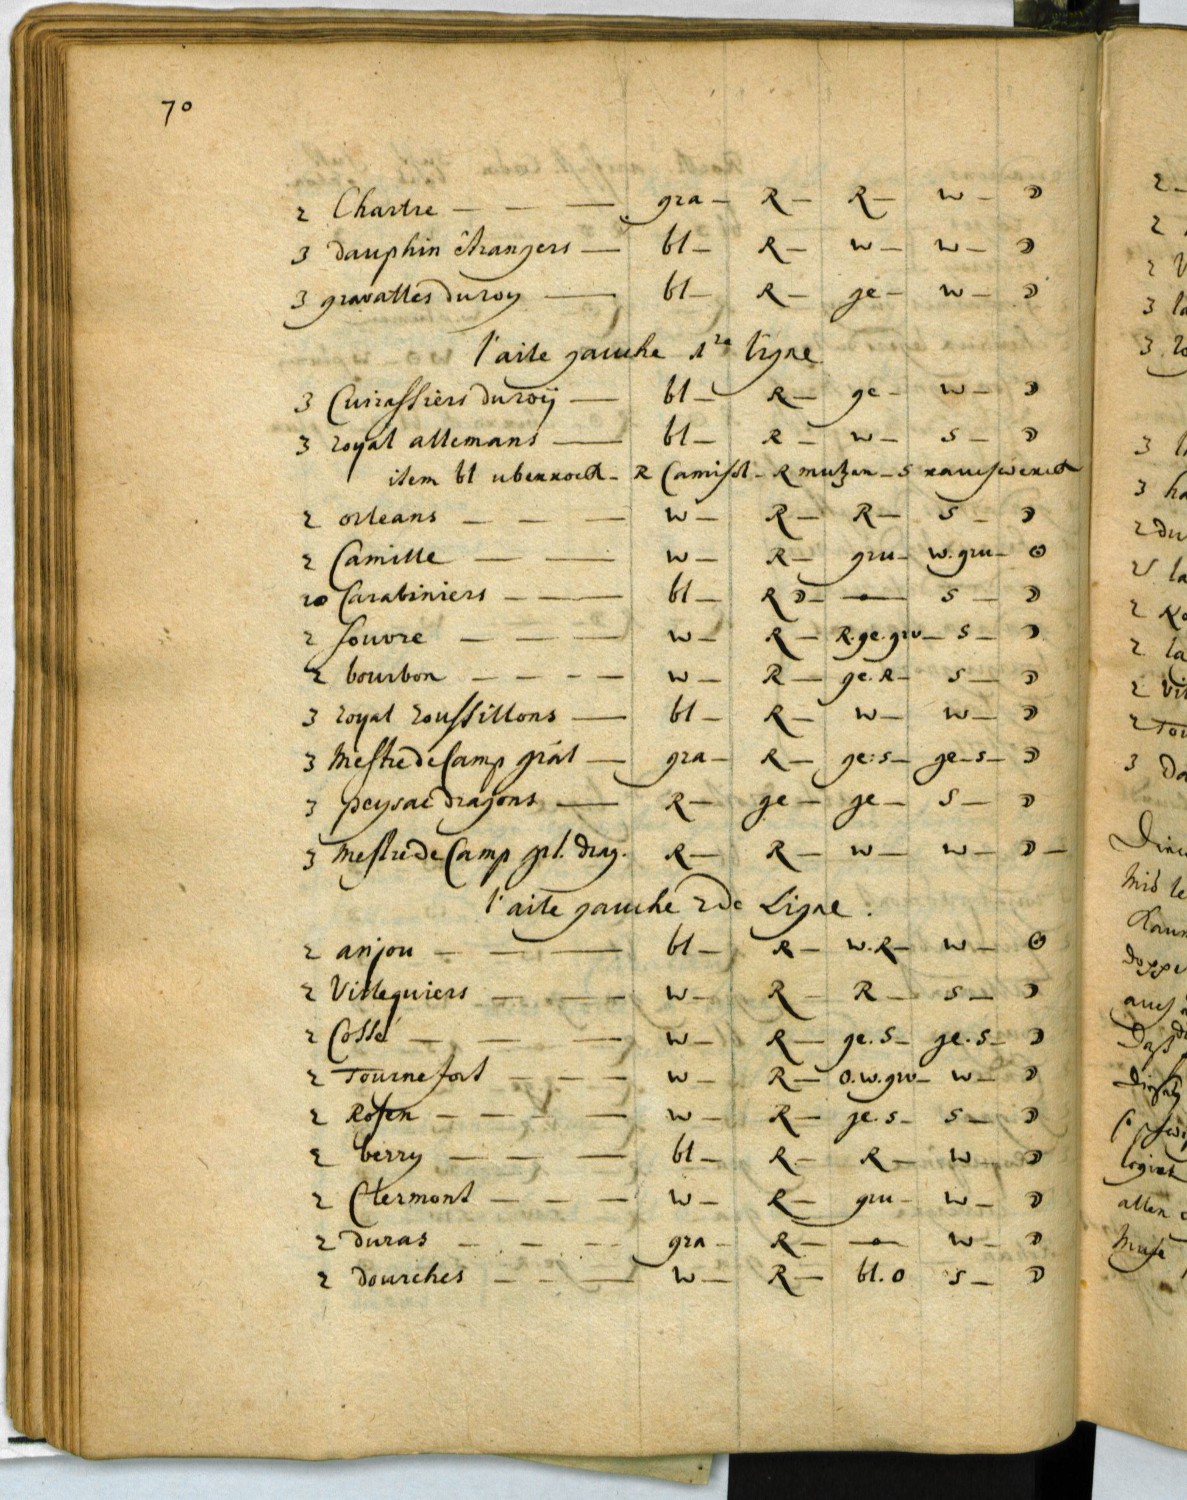 70
2 Chartre — — — gra — R — R — w — ☽
3 dauphin étrangers — bl — R — w — w — ☽
3 gravattes du roy — bl — R — ge — w — ☽
l'aile gauche 1re ligne
3 Cuirassiers du roij — bl — R — ge — w — ☽
3 royal allemans — bl — R — w — s — ☽
item bl uberrock — R Camisol — R mutzen — s
2 orleans — — — w — R — R — s — ☽
2 Camille — — w — R — gru — w. gru — ☉
10 Carabiniers — — bl — R ☽ — — s — ☽
2 souvre — — — w — R — R. ge. gru — s — ☽
2 bourbon — — — — w — R — ge. R — s — ☽
3 royal roussillons — bl — R — w — w — ☽
3 Mestre de Camp gral — gra — R — ge: s — ge — s — ☽
3 peysac dragons — R — ge — ge — s — ☽
3 Mestre de Camp grl. drag. R — R — w — w — ☽ —
l'aile gauche 2de Ligne.
2 anjou — — — bl — R — w. R — w — ☉
2 Villequiers — — — w — R — R — s — ☽
2 Cossé — — — w — R — ge. s — ge. s — ☽
2 Tournefort — — — w — R — o. w. gru — w — ☽
2 Rosen — — — — w — R — ge. s — s — ☽
2 berry — — — bl — R — R — w — ☽
2 Clermont — — — w — R — gru — w — ☽
2 duras — — — — gra — R — — w — ☽
2 dourches — — — w — R — bl. o s — ☽